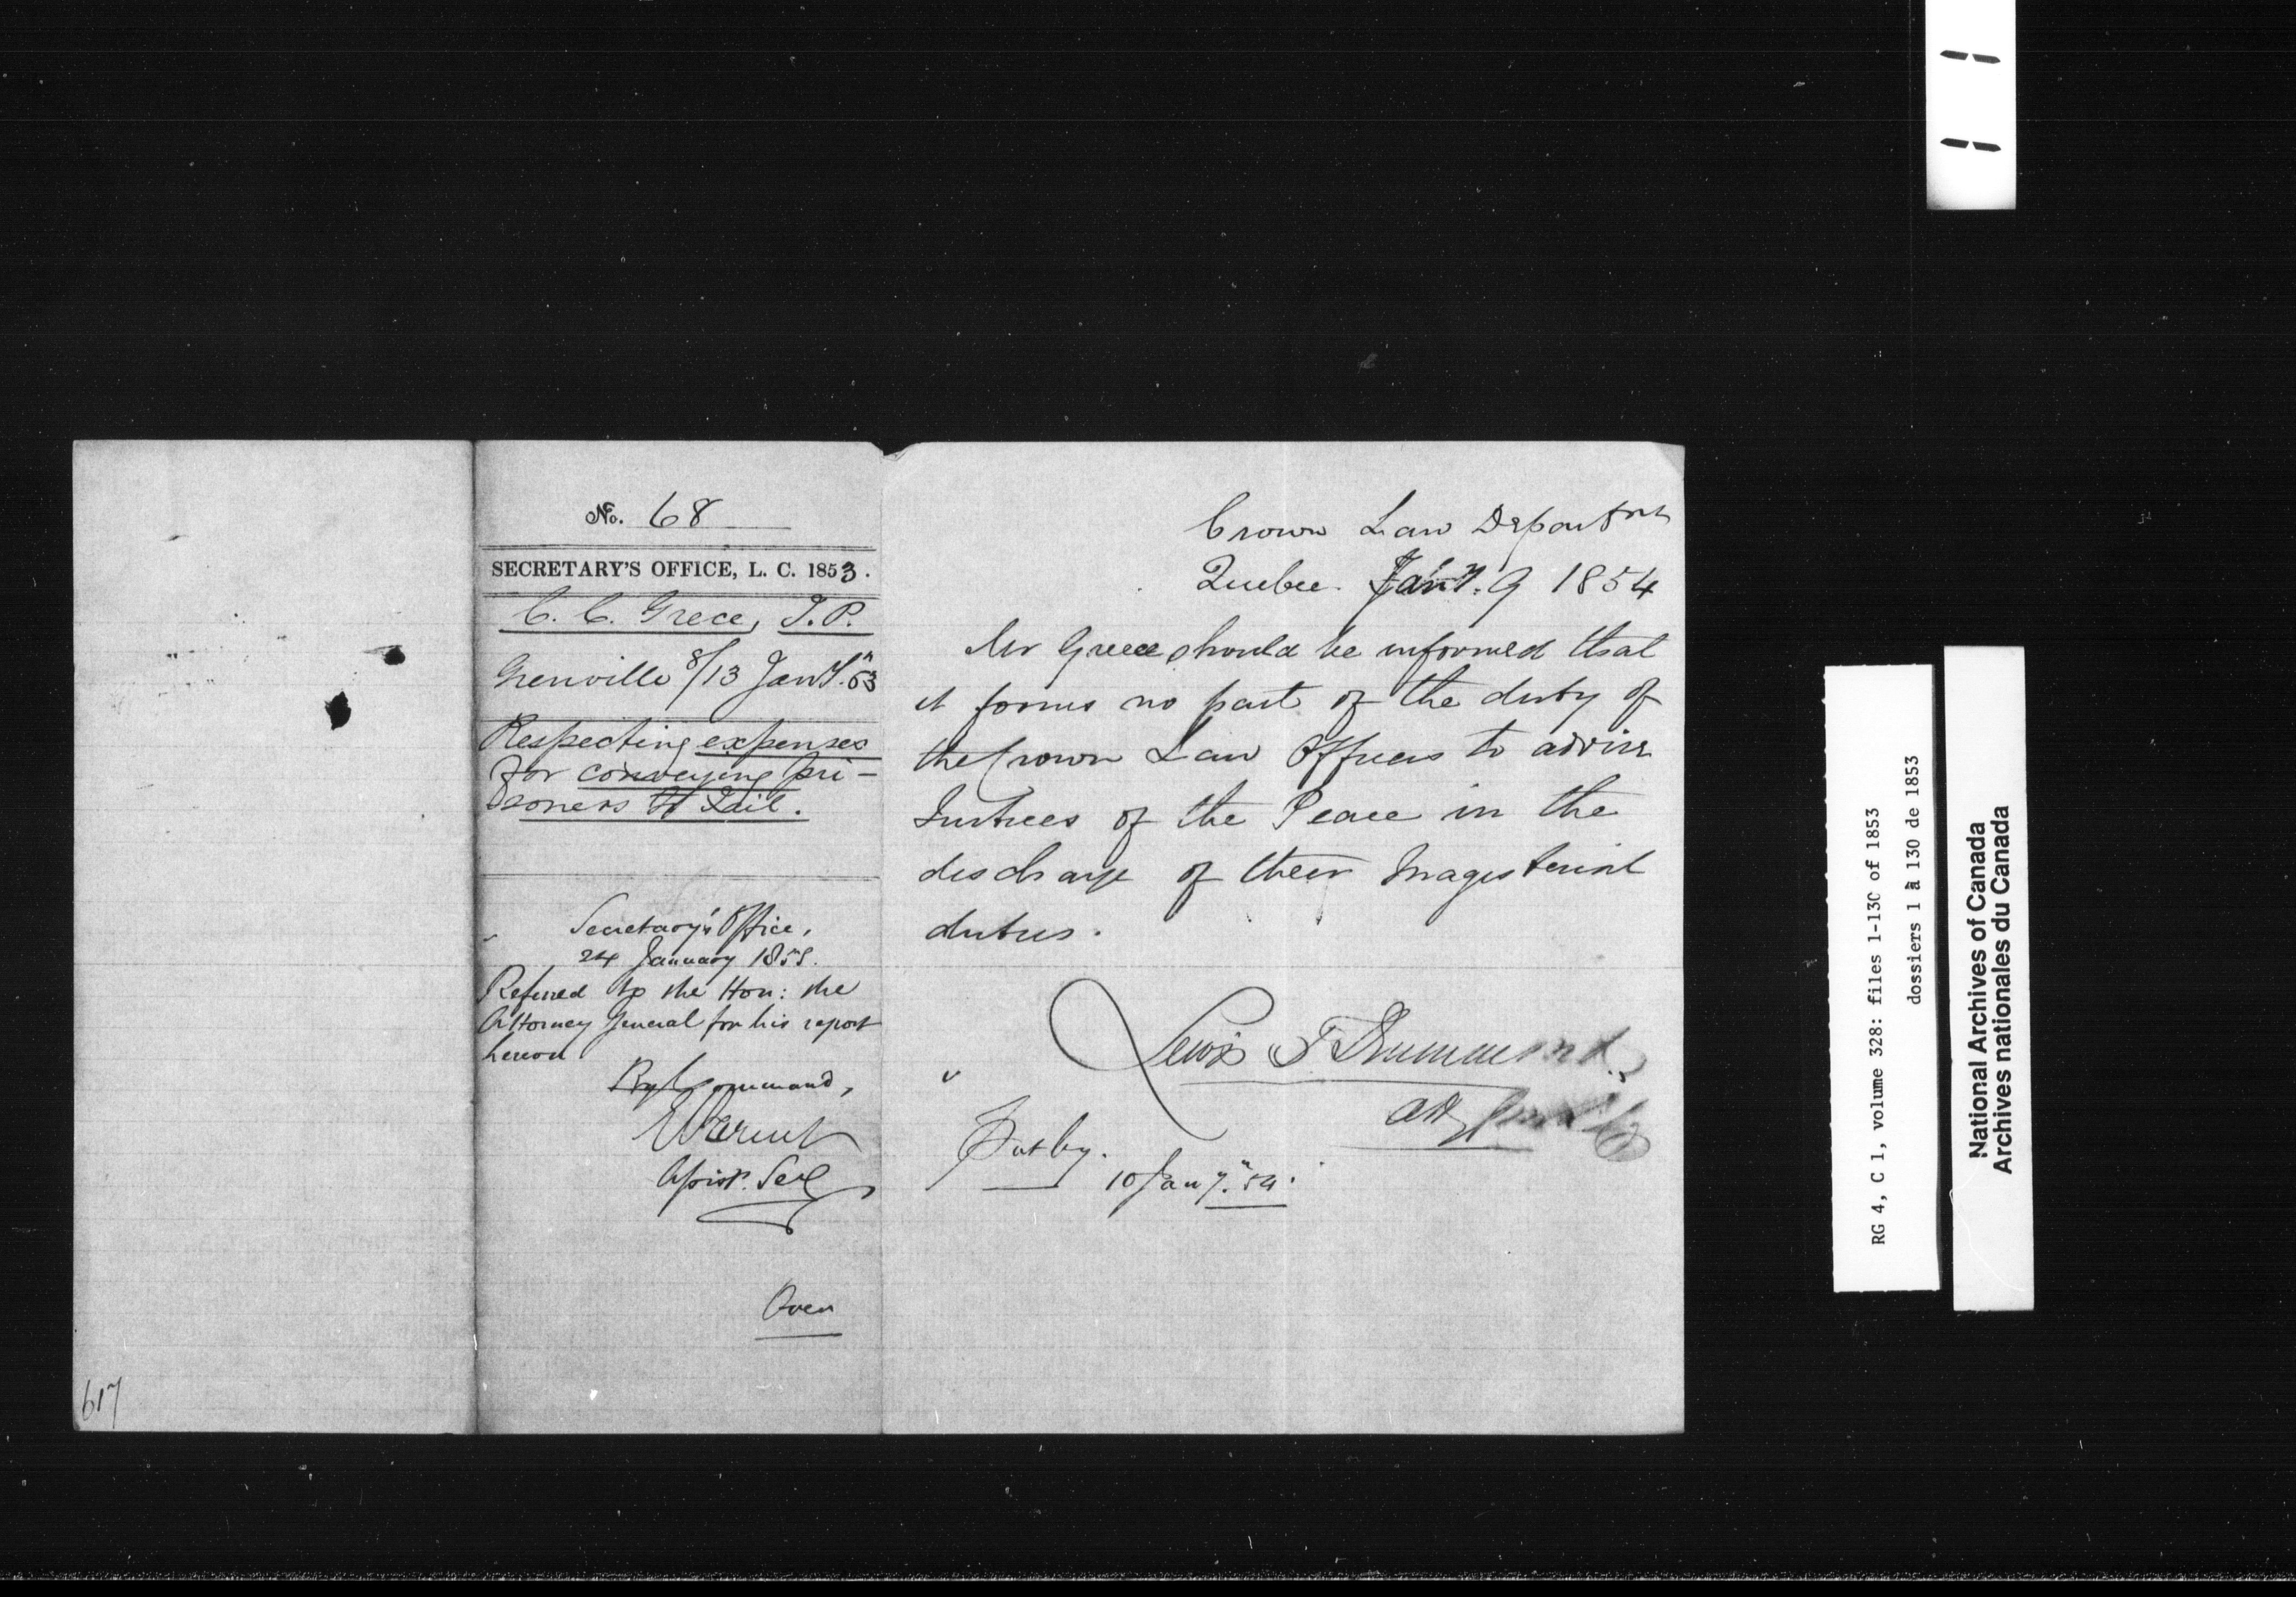 No. 68
SECRETARY'S OFFICE, L. C. 1853.
C. C. Grece, J.P.
Grenville 8/13 Jany. 53
Respecting expenses
for conveying pri-
soners to Jail.
Secretary's Office,
24 January 1853.
Referred to the Hon: the
Attorney General for his report
hereon
By Command,
Assist. Secy
Over
617
Crown Law Departmt
Quebec. Jany. 9 1854
Mr Grece should be informed that
it forms no part of the duty of
the Crown Law Officers to advise
Justices of the Peace in the
discharge of their Magisterial
duties.
Lewis T Drummond
Atty Genl
10 Jany. 54.
RG 4, C 1, volume 328: files 1-130 of 1853
dossiers 1 à 130 de 1853
National Archives of Canada
Archives nationales du Canada